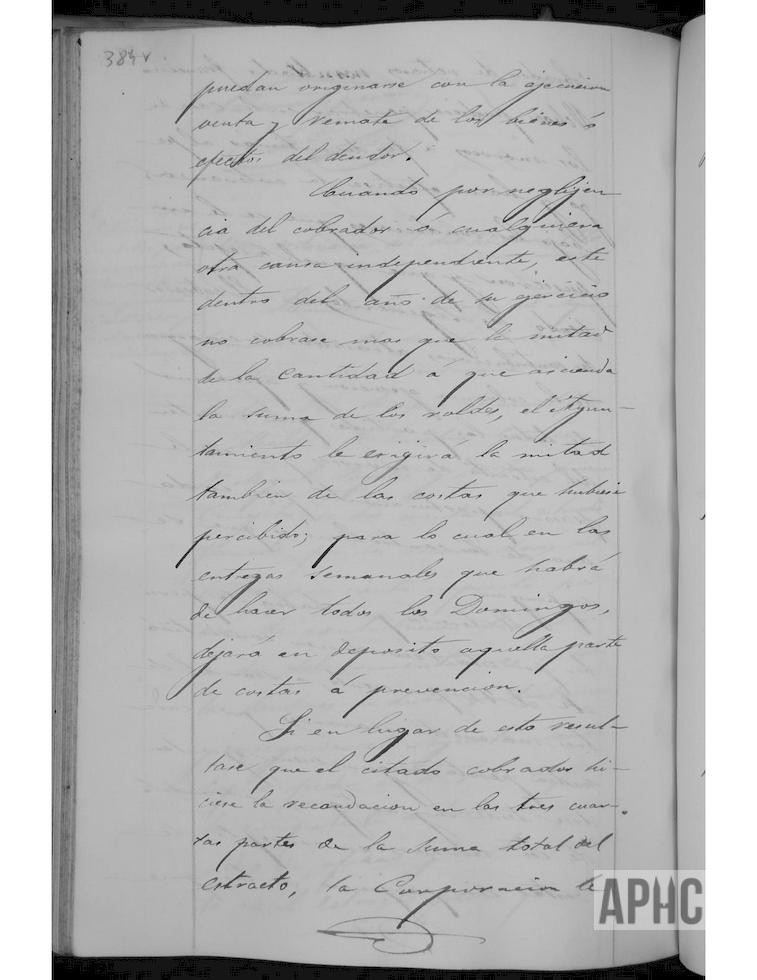 384 v
puedan originarse con la ejecucion
venta y remate de los bienes ó
efectos del deudor.
Cuando por neglijen
cia del cobrador ó cualquiera
otra causa independiente, este
dentro del año de su ejercicio
no cobrase mas que la mitad
de la cantidad á que ascienda
la suma de los roldes, el Ayun-
tamiento le exigirá la mitad
tambien de las costas que hubiese
percibido; para lo cual en las
entregas semanales que habrá
de hacer todos los Domingos,
dejará en deposito aquella parte
de costas á prevencion.
Si en lugar de esto resul-
tase que el citado cobrador hi-
ciese la recaudacion en las tres cuar-
tas partes de la suma total del
estracto, la Corporacion le
APHC